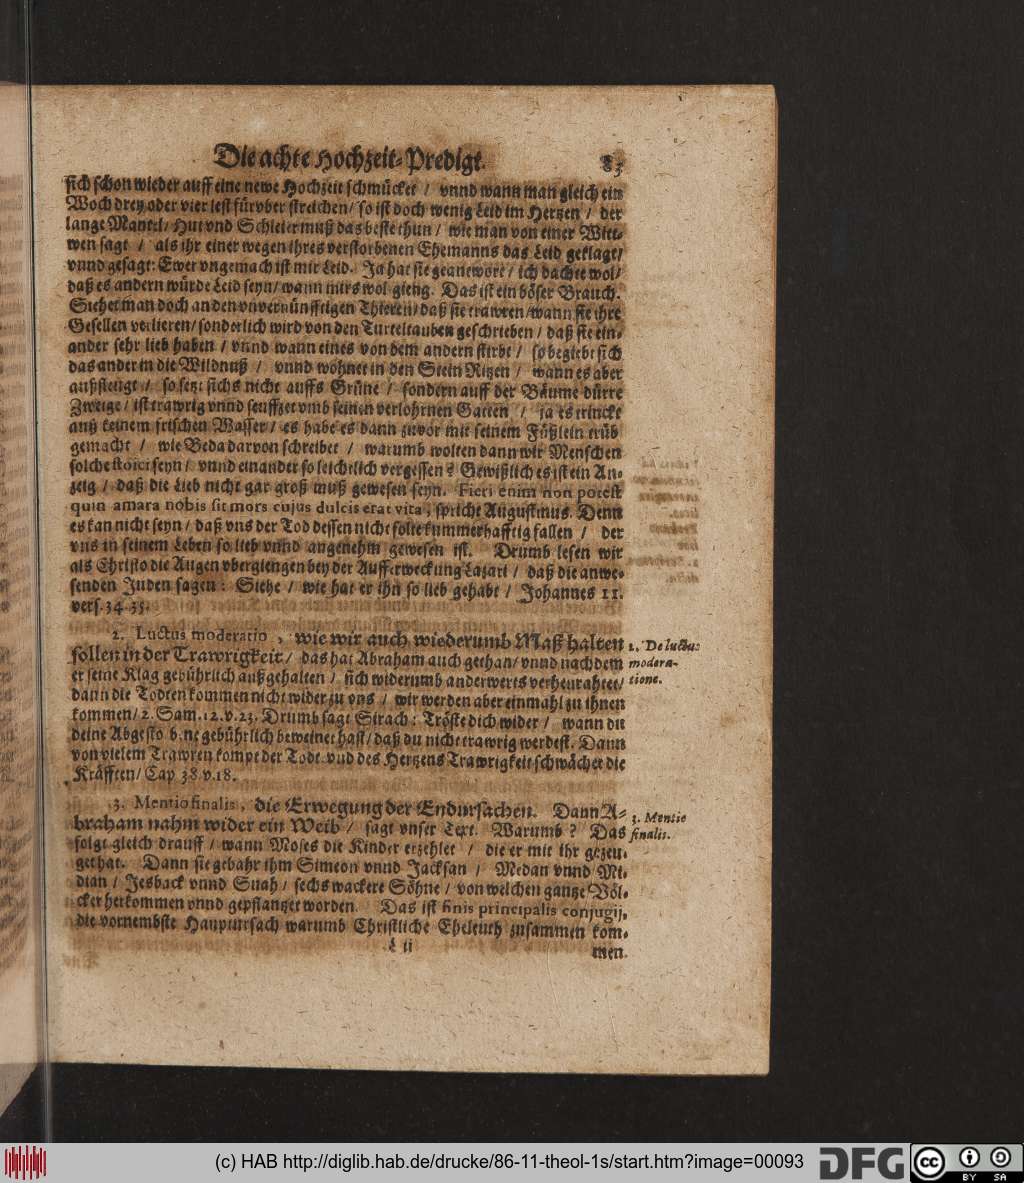 Die achte Hochzeit-Predigt. 83
sich schon wieder auff eine newe Hochzeit schmücket / vnnd wann man gleich ein
Woch drey oder vier lest fürvber streichen / so ist doch wenig Leid im Hertzen / der
lange Mantel / Hut vnd Schleier muß das beste thun / wie man von einer Witt-
wen sagt / als ihr einer wegen ihres verstorbenen Ehemanns das Leid geklagt /
vnnd gesagt: Ewer vngemach ist mir Leid. Ja hat sie geantwort / ich dachte wol /
daß es andern würde Leid seyn / wann mirs wol gieng. Das ist ein böser Brauch.
Siehet man doch an den vnvernünfftigen Thieren / daß sie trawren / wann sie ihre
Gesellen verlieren / sonderlich wird von den Turteltauben geschrieben / daß sie ein-
ander sehr lieb haben / vnnd wann eines von dem andern stirbt / so begiebt sich
das ander in die Wildnuß / vnnd wohnet in den Stein Ritzen / wann es aber
außfleugt / so setzt sichs nicht auffs Grüne / sondern auff der Bäume dürre
Zweige / ist trawrig vnnd seuffzet vmb seinen verlohrnen Gatten / ja es trinckt
auß keinem frischen Wasser / es habe es dann zuvor mit seinem Füßlein trüb
gemacht / wie Beda darvon schreibet / warumb wolten dann wir Menschen
solche stoici seyn / vnnd einander so leichtlich vergessen? Gewißlich es ist ein An-
zeig / daß die Lieb nicht gar groß muß gewesen seyn. Fieri enim non potest
quin amara nobis sit mors cujus dulcis erat vita, spricht Augustinus. Denn
es kan nicht seyn / daß vns der Tod dessen nicht solte kummerhafftig fallen / der
vns in seinem Leben so lieb vnnd angenehm gewesen ist. Drumb lesen wir
als Christo die Augen vbergiengen bey der Aufferweckung Lazari / daß die anwe-
senden Juden sagen: Siehe / wie hat er ihn so lieb gehabt / Johannes 11.
vers. 34. 35.
2. Luctus moderatio, wie wir auch wiederumb Maß halten
sollen in der Trawrigkeit / das hat Abraham auch gethan / vnnd nach dem
er seine Klag gebührlich außgehalten / sich widerumb anderwerts verheurahtet /
dann die Todten kommen nicht wider zu vns / wir werden aber einmahl zu ihnen
kommen / 2. Sam. 12. v. 23. Drumb sagt Sirach: Tröste dich wider / wann du
deine Abgestorbene gebührlich beweinet hast / daß du nicht trawrig werdest. Dann
von vielem Trawren kompt der Todt / vnd des Hertzens Trawrigkeit schwächet die
Kräfften / Cap. 38. v. 18.
2. De luctus
modera-
tione.
3. Mentio finalis, die Erwegung der Endursachen. Dann A-
braham nahm wider ein Weib / sagt vnser Text. Warumb? Das
folgt gleich drauff / wann Moses die Kinder erzehlet / die er mit ihr gezeu-
get hat. Dann sie gebahr ihm Simeon vnnd Jacksan / Medan vnnd Mi-
dian / Jesback vnnd Suah / sechs wackere Söhne / von welchen gantze Völ-
cker herkommen vnnd gepflantzet worden. Das ist finis principalis conjugij,
die vornembste Hauptursach warumb Christliche Eheleuth zusammen kom-
3. Mentio
finalis.
L ii men.
(c) HAB http://diglib.hab.de/drucke/86-11-theol-1s/start.htm?image=00093
DFG
cc BY SA